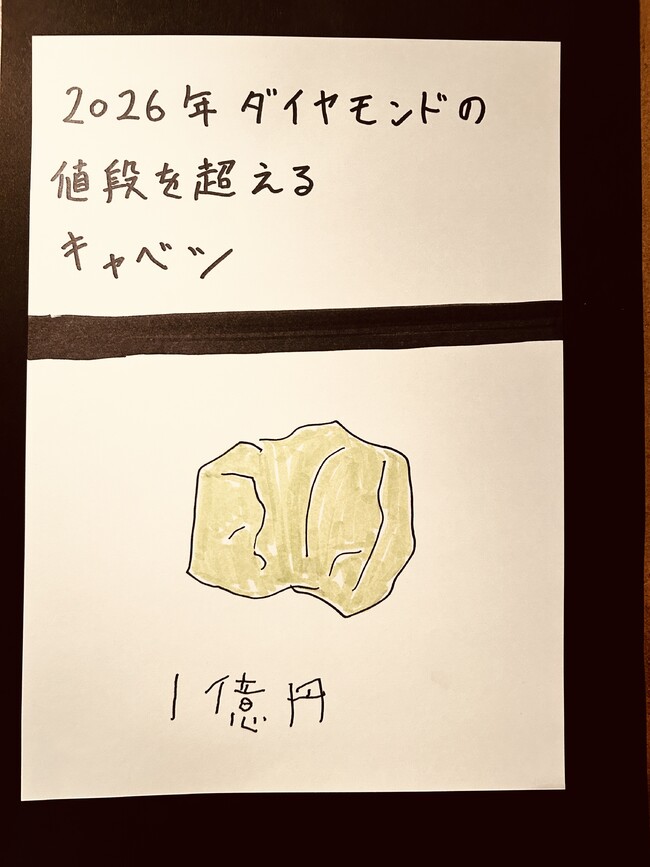 2026年 ダイヤモンドの
値段を超える
キャベツ
1億円